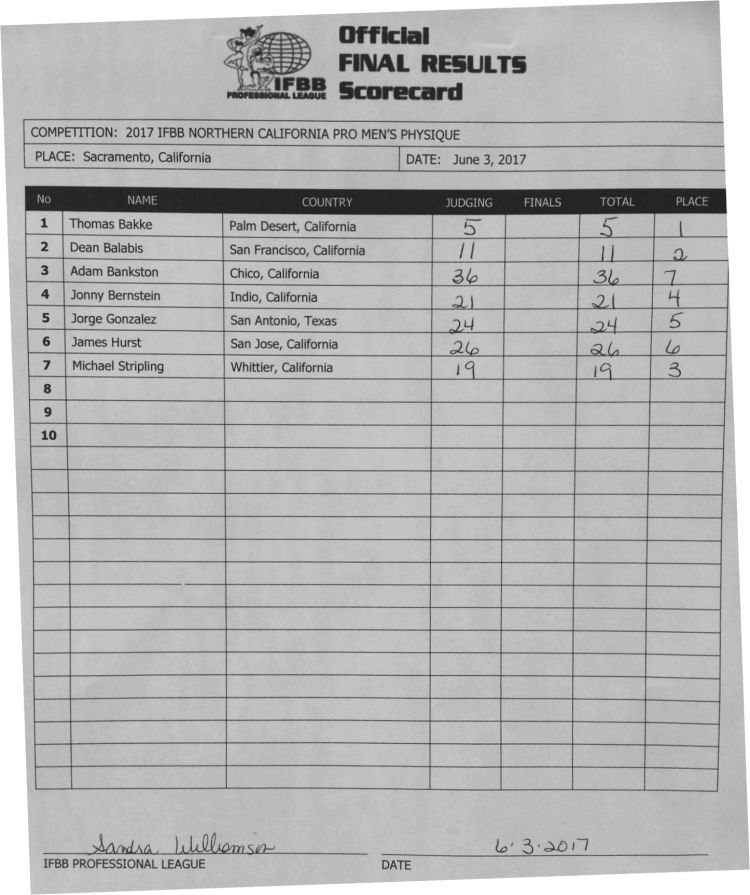 Official
FINAL RESULTS
IFBB
PROFESSIONAL LEAGUE
Scorecard
COMPETITION: 2017 IFBB NORTHERN CALIFORNIA PRO MEN'S PHYSIQUE
PLACE: Sacramento, California DATE: June 3, 2017
No NAME COUNTRY JUDGING FINALS TOTAL PLACE
1 Thomas Bakke Palm Desert, California 5 5 1
2 Dean Balabis San Francisco, California 11 11 2
3 Adam Bankston Chico, California 36 36 7
4 Jonny Bernstein Indio, California 21 21 4
5 Jorge Gonzalez San Antonio, Texas 24 24 5
6 James Hurst San Jose, California 26 26 6
7 Michael Stripling Whittier, California 19 19 3
8
9
10
Sandra Williamson 6·3·2017
IFBB PROFESSIONAL LEAGUE DATE